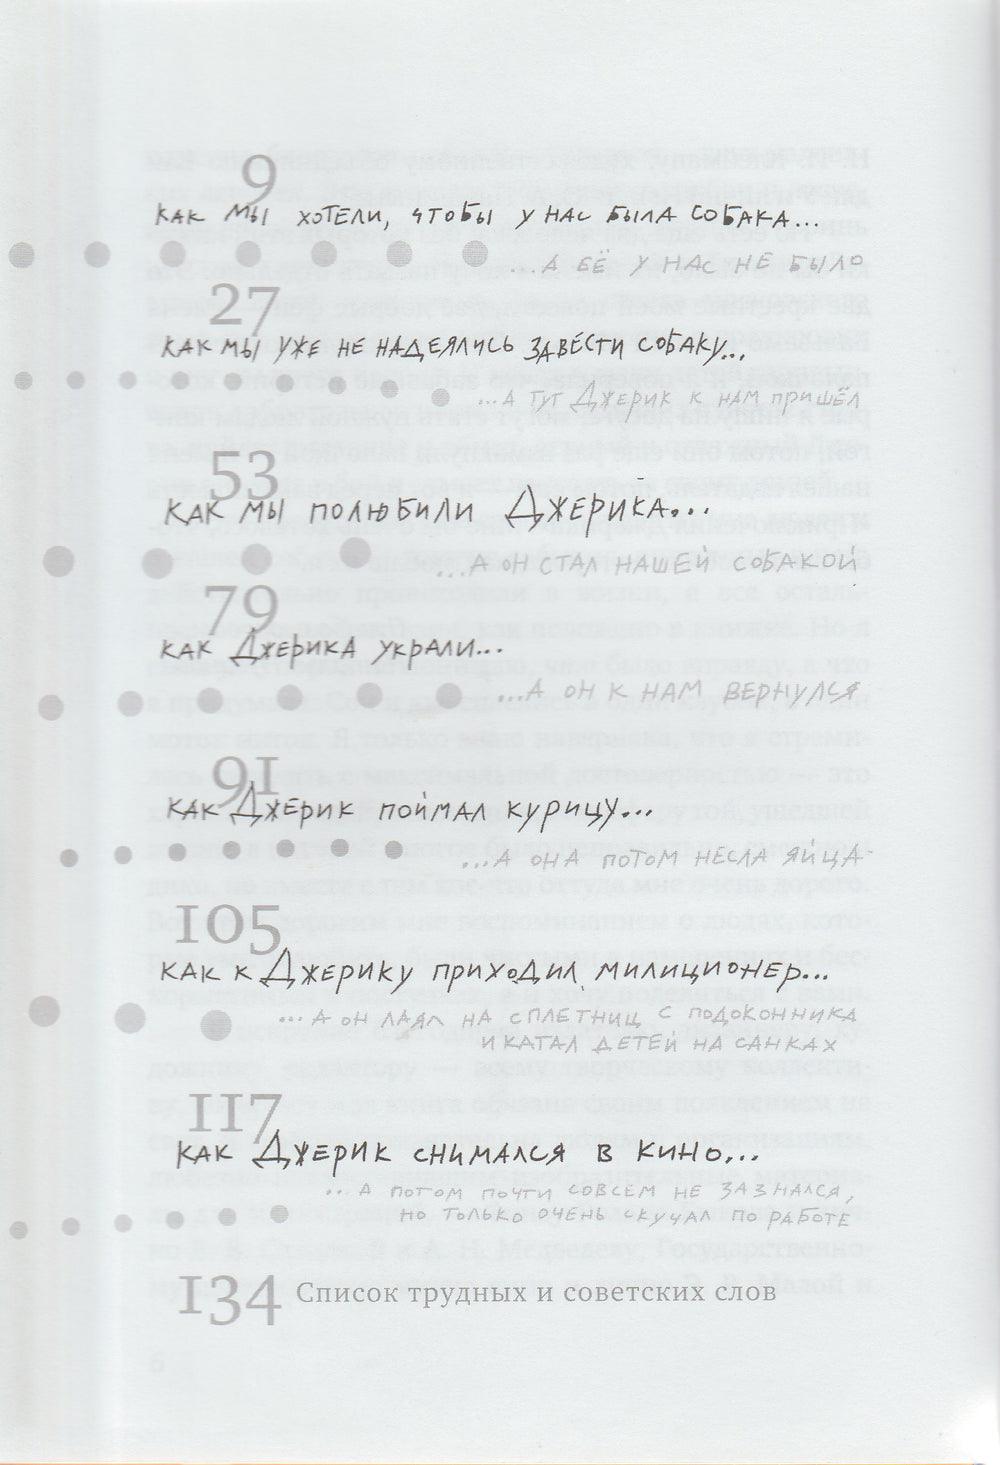 9
КАК МЫ ХОТЕЛИ, ЧТОБЫ У НАС БЫЛА СОБАКА...
...А ЕЁ У НАС НЕ БЫЛО
27
КАК МЫ УЖЕ НЕ НАДЕЯЛИСЬ ЗАВЕСТИ СОБАКУ...
...А ТУТ ДЖЕРИК К НАМ ПРИШЁЛ
53
КАК МЫ ПОЛЮБИЛИ ДЖЕРИКА...
...А ОН СТАЛ НАШЕЙ СОБАКОЙ
79
КАК ДЖЕРИКА УКРАЛИ...
...А ОН К НАМ ВЕРНУЛСЯ
91
КАК ДЖЕРИК ПОЙМАЛ КУРИЦУ...
...А ОНА ПОТОМ НЕСЛА ЯЙЦА
105
КАК К ДЖЕРИКУ ПРИХОДИЛ МИЛИЦИОНЕР...
...А ОН ЛАЯЛ НА СПЛЕТНИЦ С ПОДОКОННИКА
И КАТАЛ ДЕТЕЙ НА САНКАХ
117
КАК ДЖЕРИК СНИМАЛСЯ В КИНО...
...А ПОТОМ ПОЧТИ СОВСЕМ НЕ ЗАЗНАЛСЯ,
НО ТОЛЬКО ОЧЕНЬ СКУЧАЛ ПО РАБОТЕ
134 Список трудных и советских слов